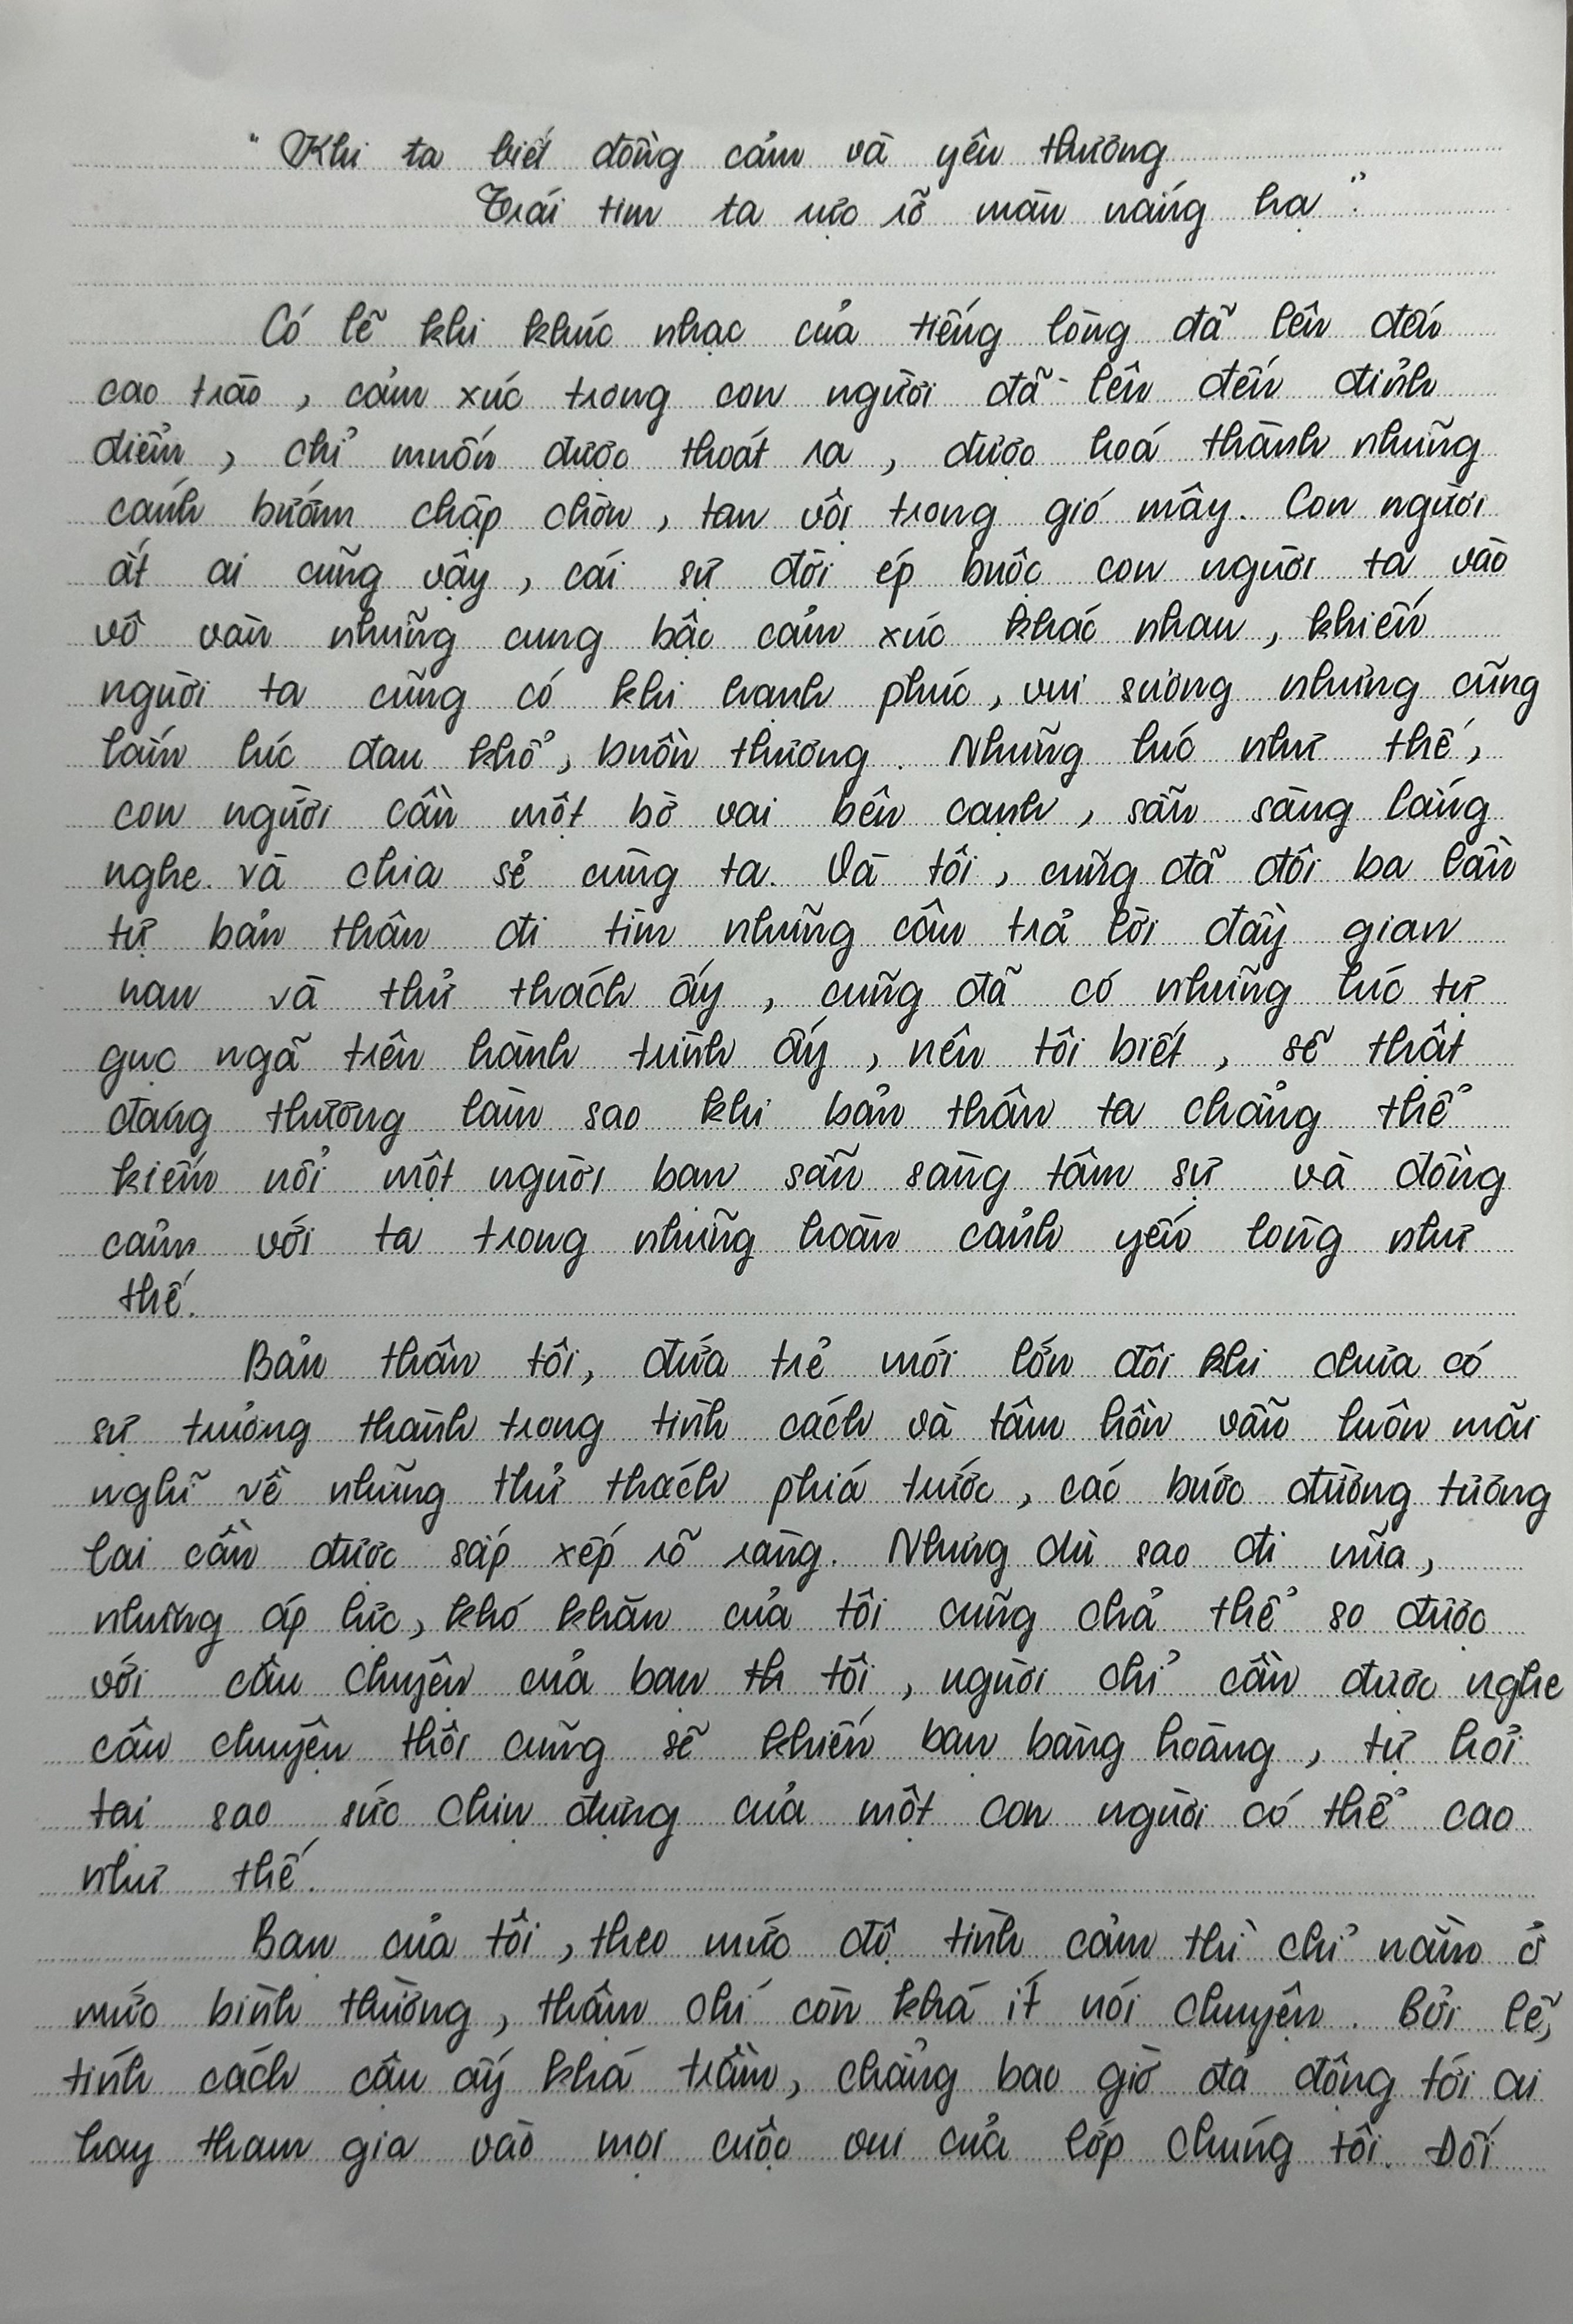 " Khi ta biết đồng cảm và yêu thương
Trái tim ta rực rỡ màu nắng hạ ".
Có lẽ khi khúc nhạc của tiếng lòng đã lên đến
cao trào , cảm xúc trong con người đã lên đến đỉnh
điểm , chỉ muốn được thoát ra , được hoá thành những
cánh bướm chập chờn , tan vội trong gió mây. Con người
ắt ai cũng vậy , cái sự đời ép buộc con người ta vào
vô vàn những cung bậc cảm xúc khác nhau , khiến
người ta cũng có khi hạnh phúc , vui sướng nhưng cũng
lắm lúc đau khổ , buồn thương . Những lúc như thế ,
con người cần một bờ vai bên cạnh , sẵn sàng lắng
nghe và chia sẻ cùng ta. Và tôi , cũng đã đôi ba lần
tự bản thân đi tìm những câu trả lời đầy gian
nan và thử thách ấy , cũng đã có những lúc tự
gục ngã trên hành trình ấy , nên tôi biết , sẽ thật
đáng thương làm sao khi bản thân ta chẳng thể
kiếm nổi một người bạn sẵn sàng tâm sự và đồng
cảm với ta trong những hoàn cảnh yếu lòng như
thế.
Bản thân tôi, đứa trẻ mới lớn đôi khi chưa có
sự trưởng thành trong tính cách và tâm hồn vẫn luôn mãi
nghĩ về những thử thách phía trước , các bước đường tương
lai cần được sắp xếp rõ ràng. Nhưng dù sao đi nữa ,
những áp lực , khó khăn của tôi cũng chả thể so được
với câu chuyện của bạn th tôi , người chỉ cần được nghe
câu chuyện thôi cũng sẽ khiến bạn bàng hoàng , tự hỏi
tại sao sức chịu đựng của một con người có thể cao
như thế.
Bạn của tôi , theo mức độ tình cảm thì chỉ nằm ở
mức bình thường , thậm chí còn khá ít nói chuyện . Bởi lẽ,
tính cách cậu ấy khá trầm , chẳng bao giờ đả động tới ai
hay tham gia vào mọi cuộc vui của lớp chúng tôi. Đối